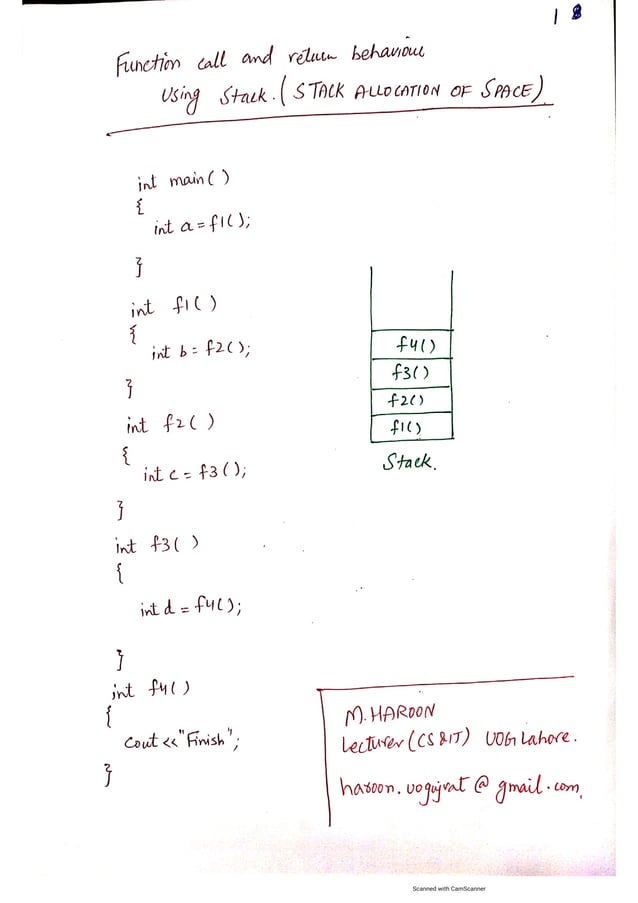 18
Function call and return behaviour
Using Stack. (STACK ALLOCATION OF SPACE)
int main()
{
int a = f1();
}
int f1()
{
int b = f2();
}
int f2()
{
int c = f3();
}
int f3()
{
int d = f4();
}
int f4()
{
cout << "Finish";
}
f4()
f3()
f2()
f1()
Stack.
M. HAROON
Lecturer (CS & IT) UOG Lahore.
haroon.uogujrat@gmail.com,
Scanned with CamScanner